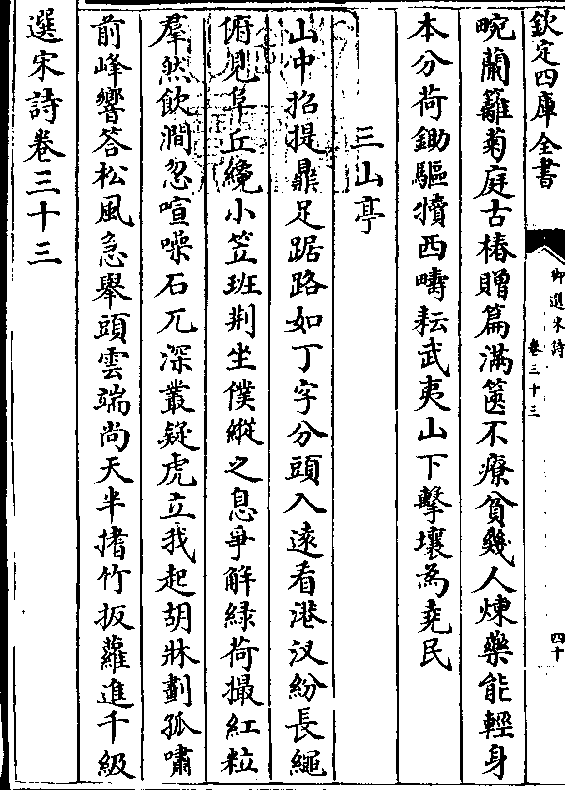 欽定四庫全書
御選宋詩
卷三十三
四十
畹蘭籬菊庭古椿贈篇滿篋不療貧幾人煉藥能輕身
本分荷鋤驅犢西疇耘武夷山下擊壤為堯民
三山亭
山中招提鼎足踞路如丁字分頭入遠看港汊紛長繩
俯見阜丘纔小笠班荆坐僕縱之息爭解緑荷撮紅粒
羣然飲澗忽喧噪石兀深叢疑虎立我起胡牀劃孤嘯
前峰響答松風急舉頭雲端尚天半揩竹扳蘿進千級
選宋詩卷三十三